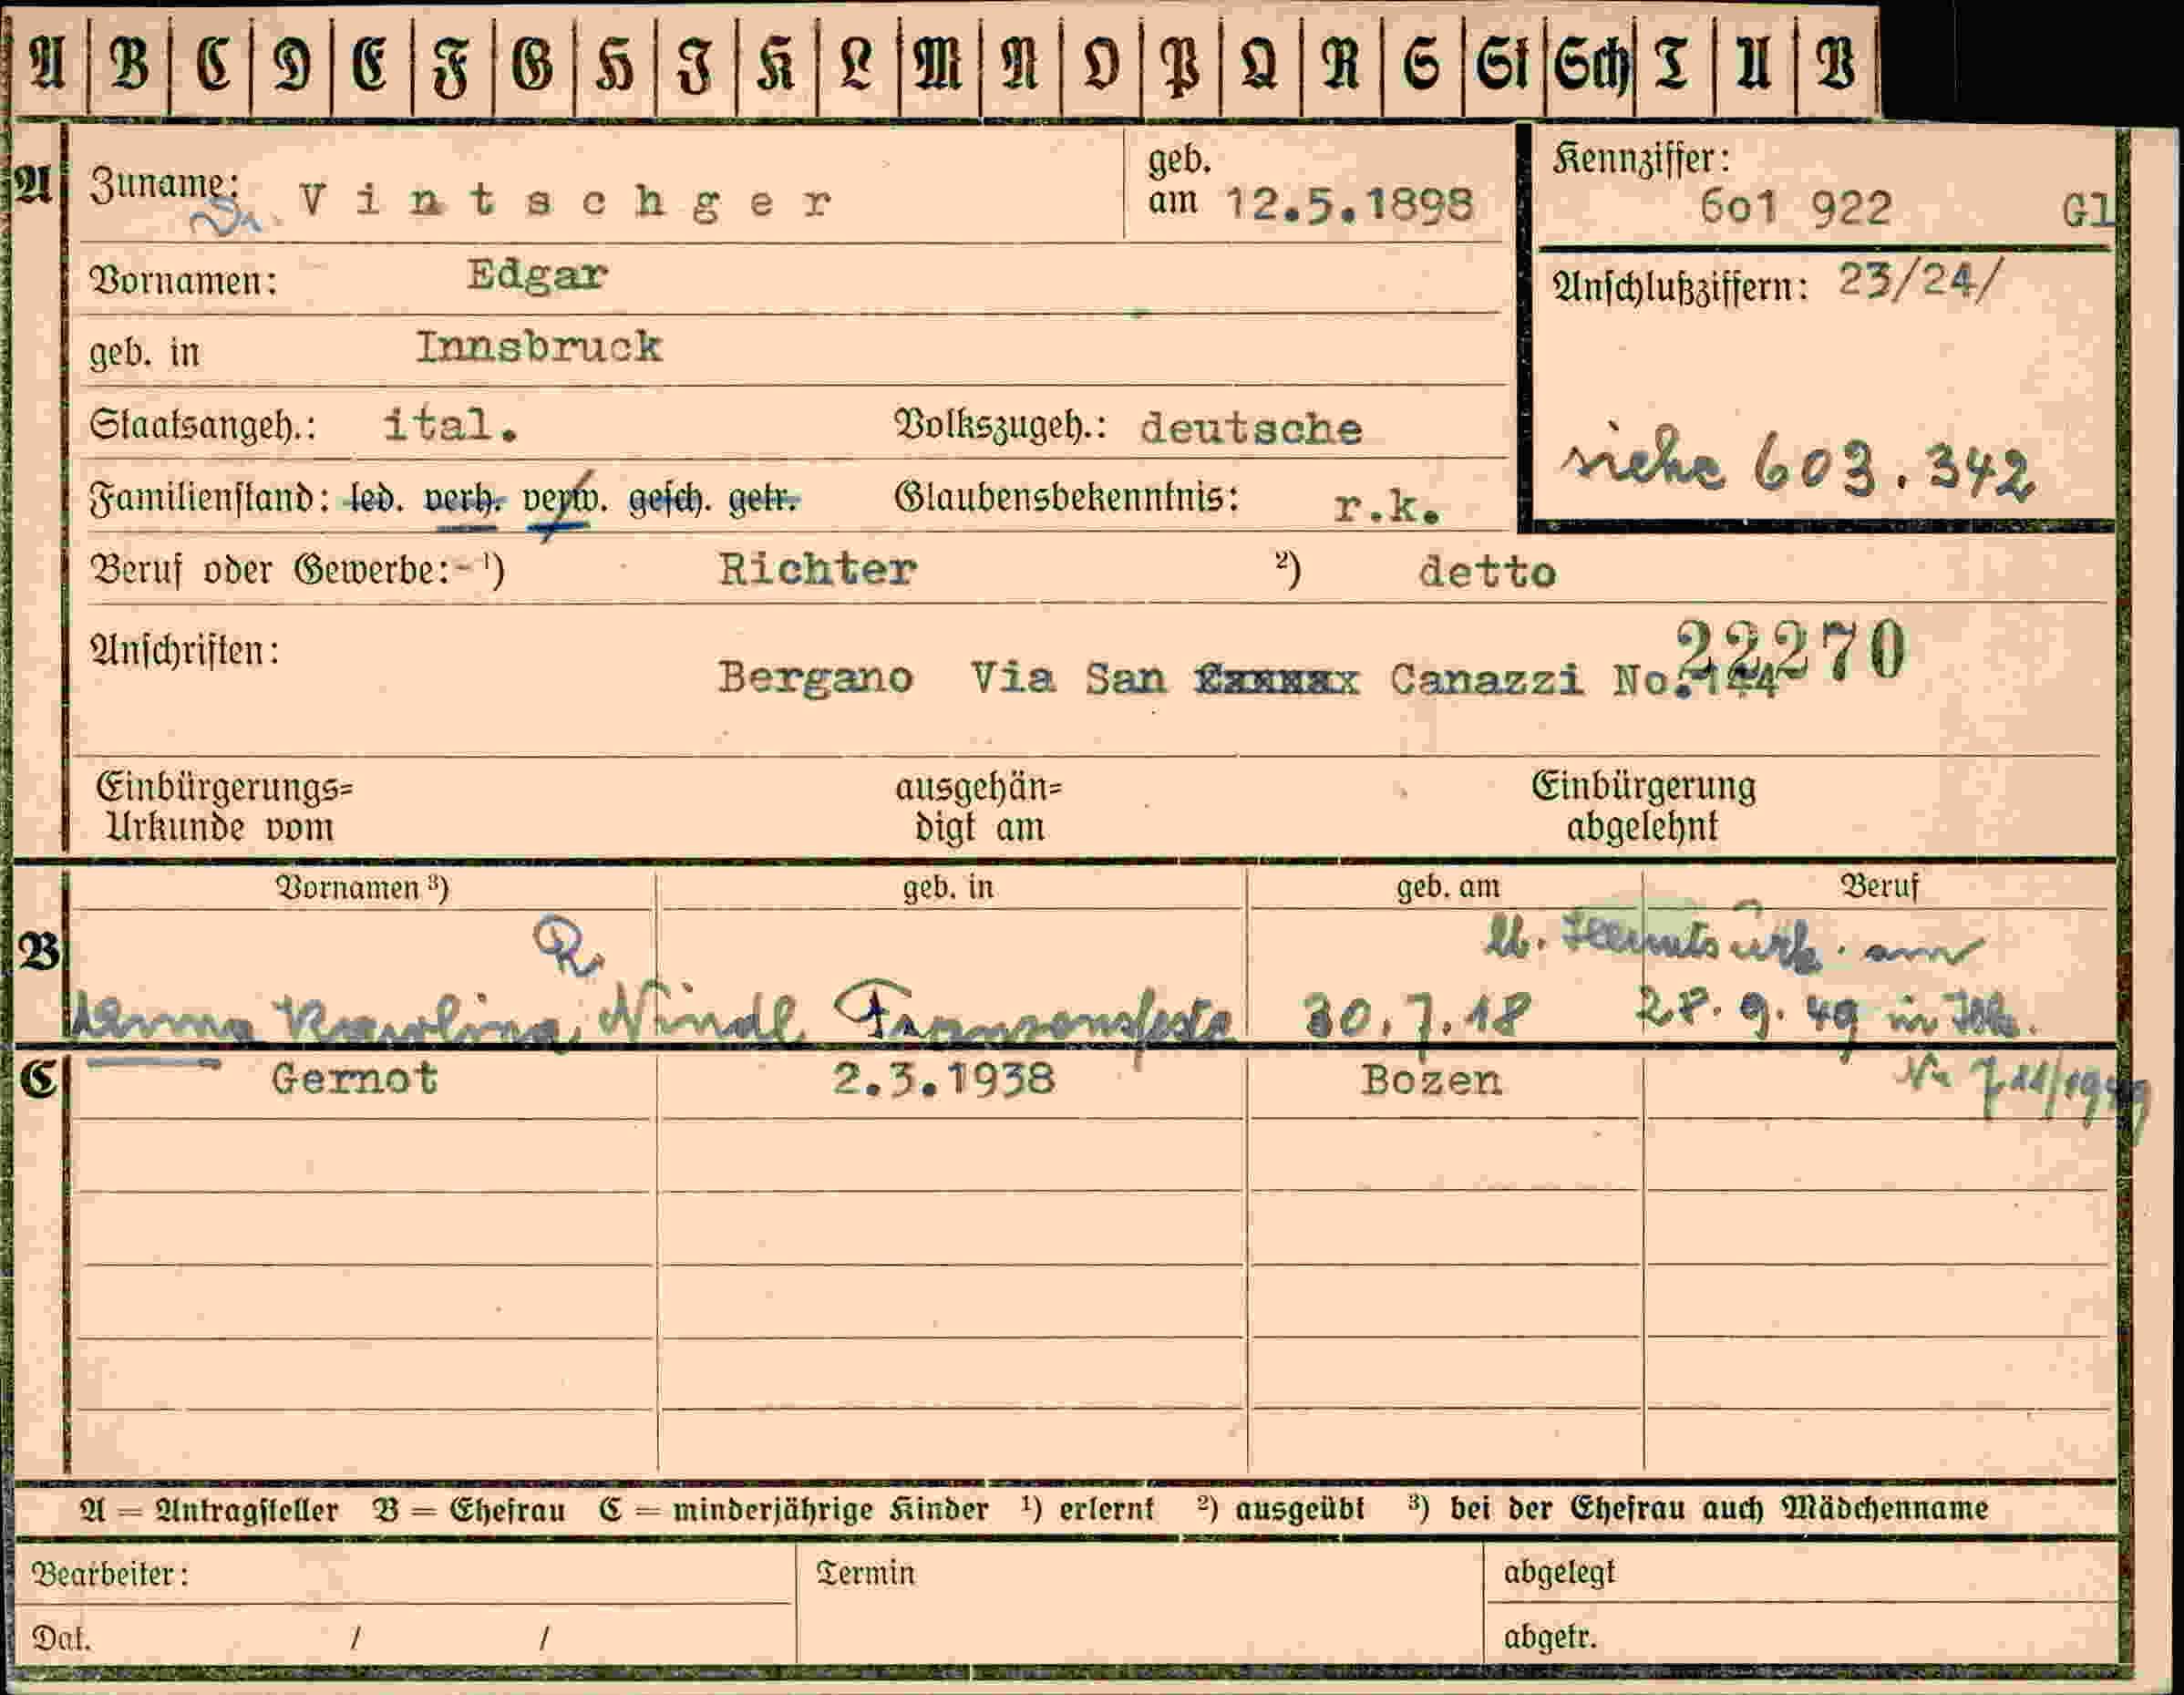 A B C D E F G H I K L M N O P Q R S St Sch T U V
A Zuname: Dr. Vintschger geb. am 12.5.1898 Kennziffer: 6o1 922 Gl
Vornamen: Edgar Anschlußziffern: 23/24/
geb. in Innsbruck
Staatsangeh.: ital. Volkszugeh.: deutsche siehe 603.342
Familienstand: led. verh. verw. gesch. getr. Glaubensbekenntnis: r.k.
Beruf oder Gewerbe:- ¹) Richter ²) detto
Anschriften: 22270
Bergano Via San Canazzi No. 144
Einbürgerungs= ausgehän= Einbürgerung
Urkunde vom digt am abgelehnt
Vornamen ³) geb. in geb. am Beruf
B R. lt. Heiratsurk. am
Anna Karolina Nindl Franzensfeste 30.7.18 28.9.49 in Ibk.
C Gernot 2.3.1938 Bozen Nr 711/1949
A = Antragsteller B = Ehefrau C = minderjährige Kinder ¹) erlernt ²) ausgeübt ³) bei der Ehefrau auch Mädchenname
Bearbeiter: Termin abgelegt
Dat. / / abgetr.